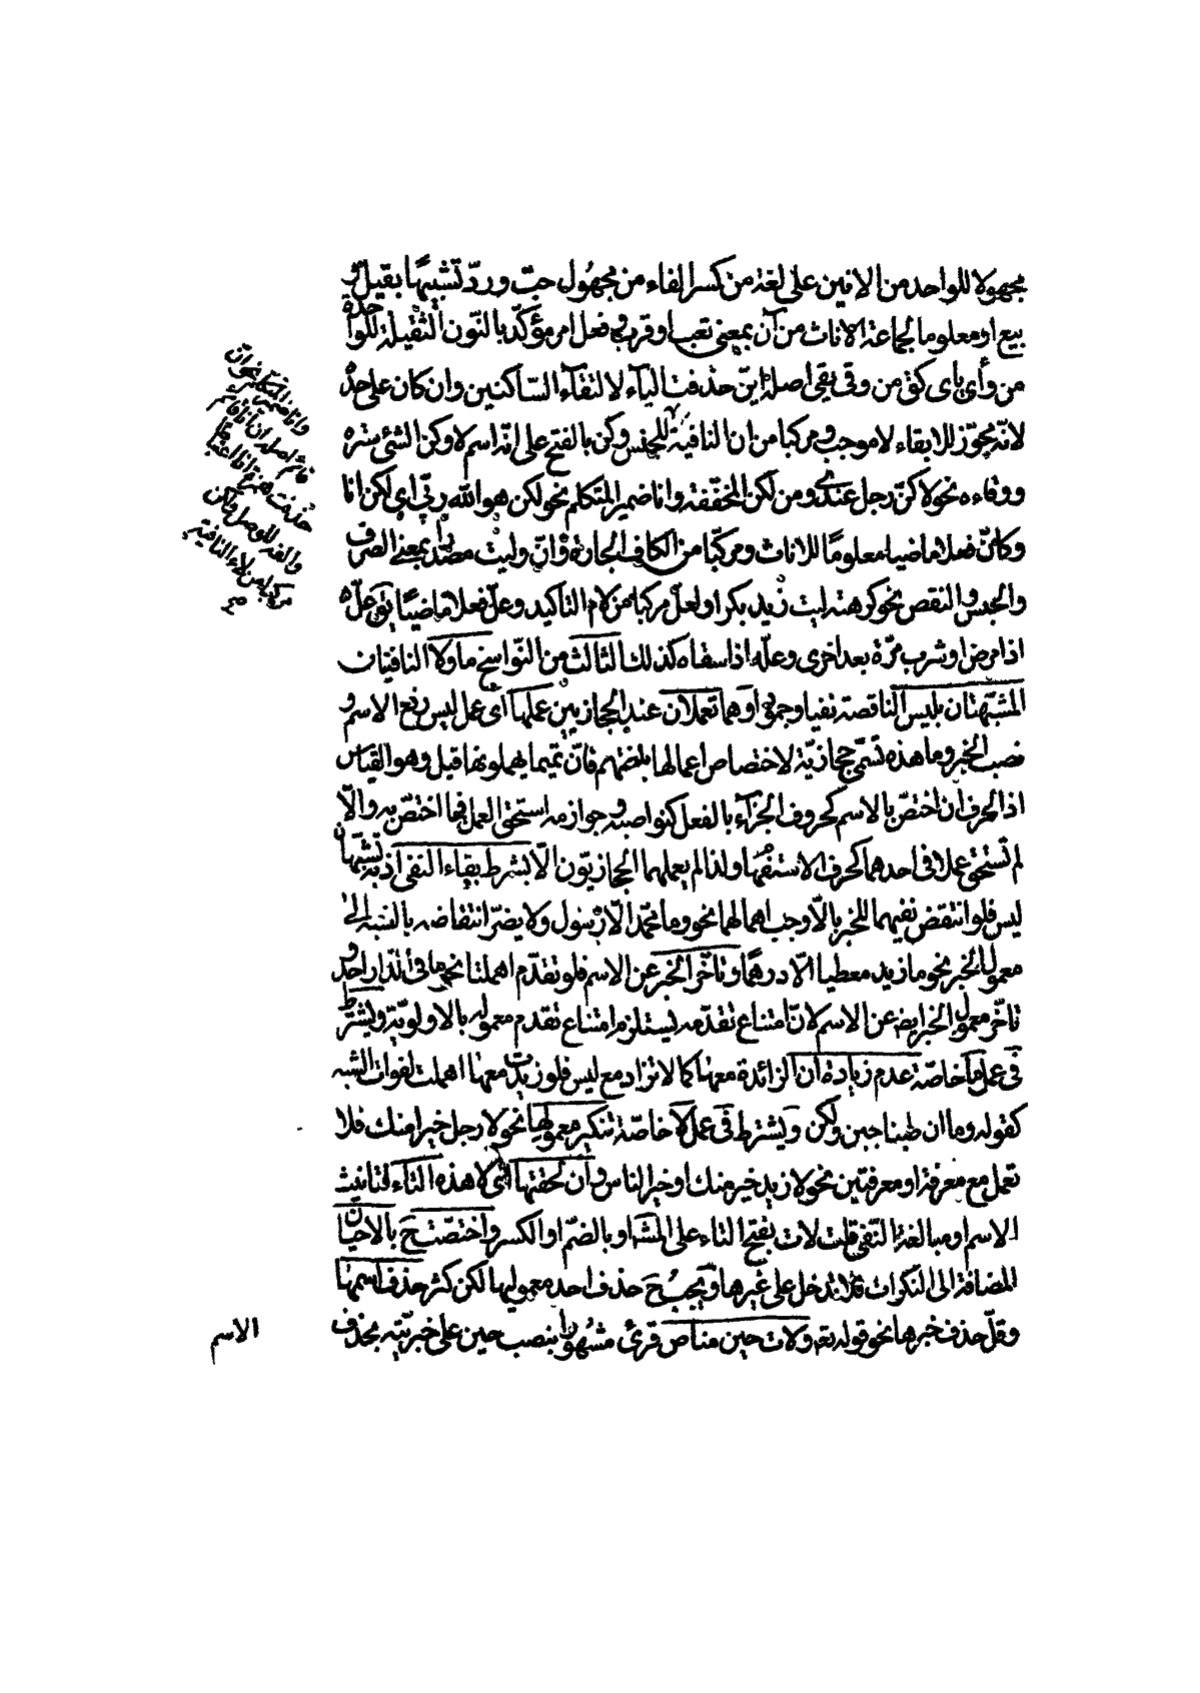 مجهولا للواحد من الانين على لغة من كسر الفاء من مجهول حبّ وردّ تشبيهًا بقيل و
بيع او معلوما لجماعة الاناث من آن بمعنى تعب او قرب و فعل امر مؤكّد بالنّون الثّقيلة للواحدة
من وأى يأى كوقى من وقى يقى اصله اينّ حذفت الياء لالتقاء السّاكنين وان كان على حدّه
لانّه مجوّز للابقاء لا موجب و مركبا من ان النافية للجنس وكن بالفتح على انّه اسم لا وكن الشئ ستره
ووقاءه نحو لا كنّ رجل عندى ومن لكن المخففة وانا ضمير المتكلم نحو لكن هو الله ربّى اى لكن انا
وكانّ فعلا ماضيا معلومًا للاناث ومركّبا من الكاف الجارة وانّ وليت مصدرا بمعنى الصرف
والحبس والنقص نحو كرهت ليت زيد بكرا ولعلّ مركبا من لام التأكيد وعلّ فعلا ماضيًا يق علّه
اذا مرض او شرب مرّة بعد اخرى وعلّه اذا سقاه كذلك الثالث من النّواسخ ما ولا النافيتان
المشبّهتان بليس الناقصة نفيا وجمودا وهما تعملان عند الحجازيين عملها اى عمل ليس رفع الاسم و
نصب الخبر وما هذه تسمّى حجازيّة لاختصاص اعمالها بلغتهم فانّ تميما يهملونها قيل وهو القياس
اذ الحرف ان اختصّ بالاسم كحروف الجرّ او بالفعل كنواصبه وجوازمه استحق العمل فيما اختصّ به والّا
لم تستحق عملا فى احدهما كحرف الاستفهام ولذا لم يعملهما الحجازيّون الّا بشرط بقاء النفى اذ به تشبّها
ليس فلو انتقض نفيهما للخبر بالّا وجب اهمالهما نحو وما محمّد الّا رسول ولا يضرّ انتقاضه بالنسبة الى
معمول الخبر نحو ما زيد معطيا الّا درهمًا وتأخّر الخبر عن الاسم فلو تقدّم اهملتا نحو ما فى الدّار احد و
تأخّر معمول الخبر ايضا عن الاسم لانّ امتناع تقدّمه يستلزم امتناع تقدم معموله بالاولويّة ويشترط
فى عمل ما خاصّة عدم زيادة ان الزائدة معها كما لا تزاد مع ليس فلو زيدت معها اهملت لفوات الشبه
كقوله وما ان طبنا جبن ولكن ويشترط فى عمل لا خاصّة تنكير معموليها نحو لا رجل خيرا منك فلا
تعمل مع معرفة او معرفتين نحو لا زيد خير منك او خير الناس وان لحقتها اى لا هذه التاء لتانيث
الاسم او مبالغة النّفى قلت لات بفتح التاء على المشهور او بالضمّ او الكسر واختصّت ح بالاحيان
المضافة الى النكرات فلا تدخل على غيرها ويجب ح حذف احد معموليها لكن كثر حذف اسمها
وقلّ حذف خبرها نحو قوله تع ولات حين مناص قرئ مشهورا بنصب حين على خبريّته بحذف
الاسم
وانا ضمير المتكلم نحو ان
قائم اصله ان انا قائم
حذفت همزة انا
والفه للوصل فان
مركبا من لا النافية